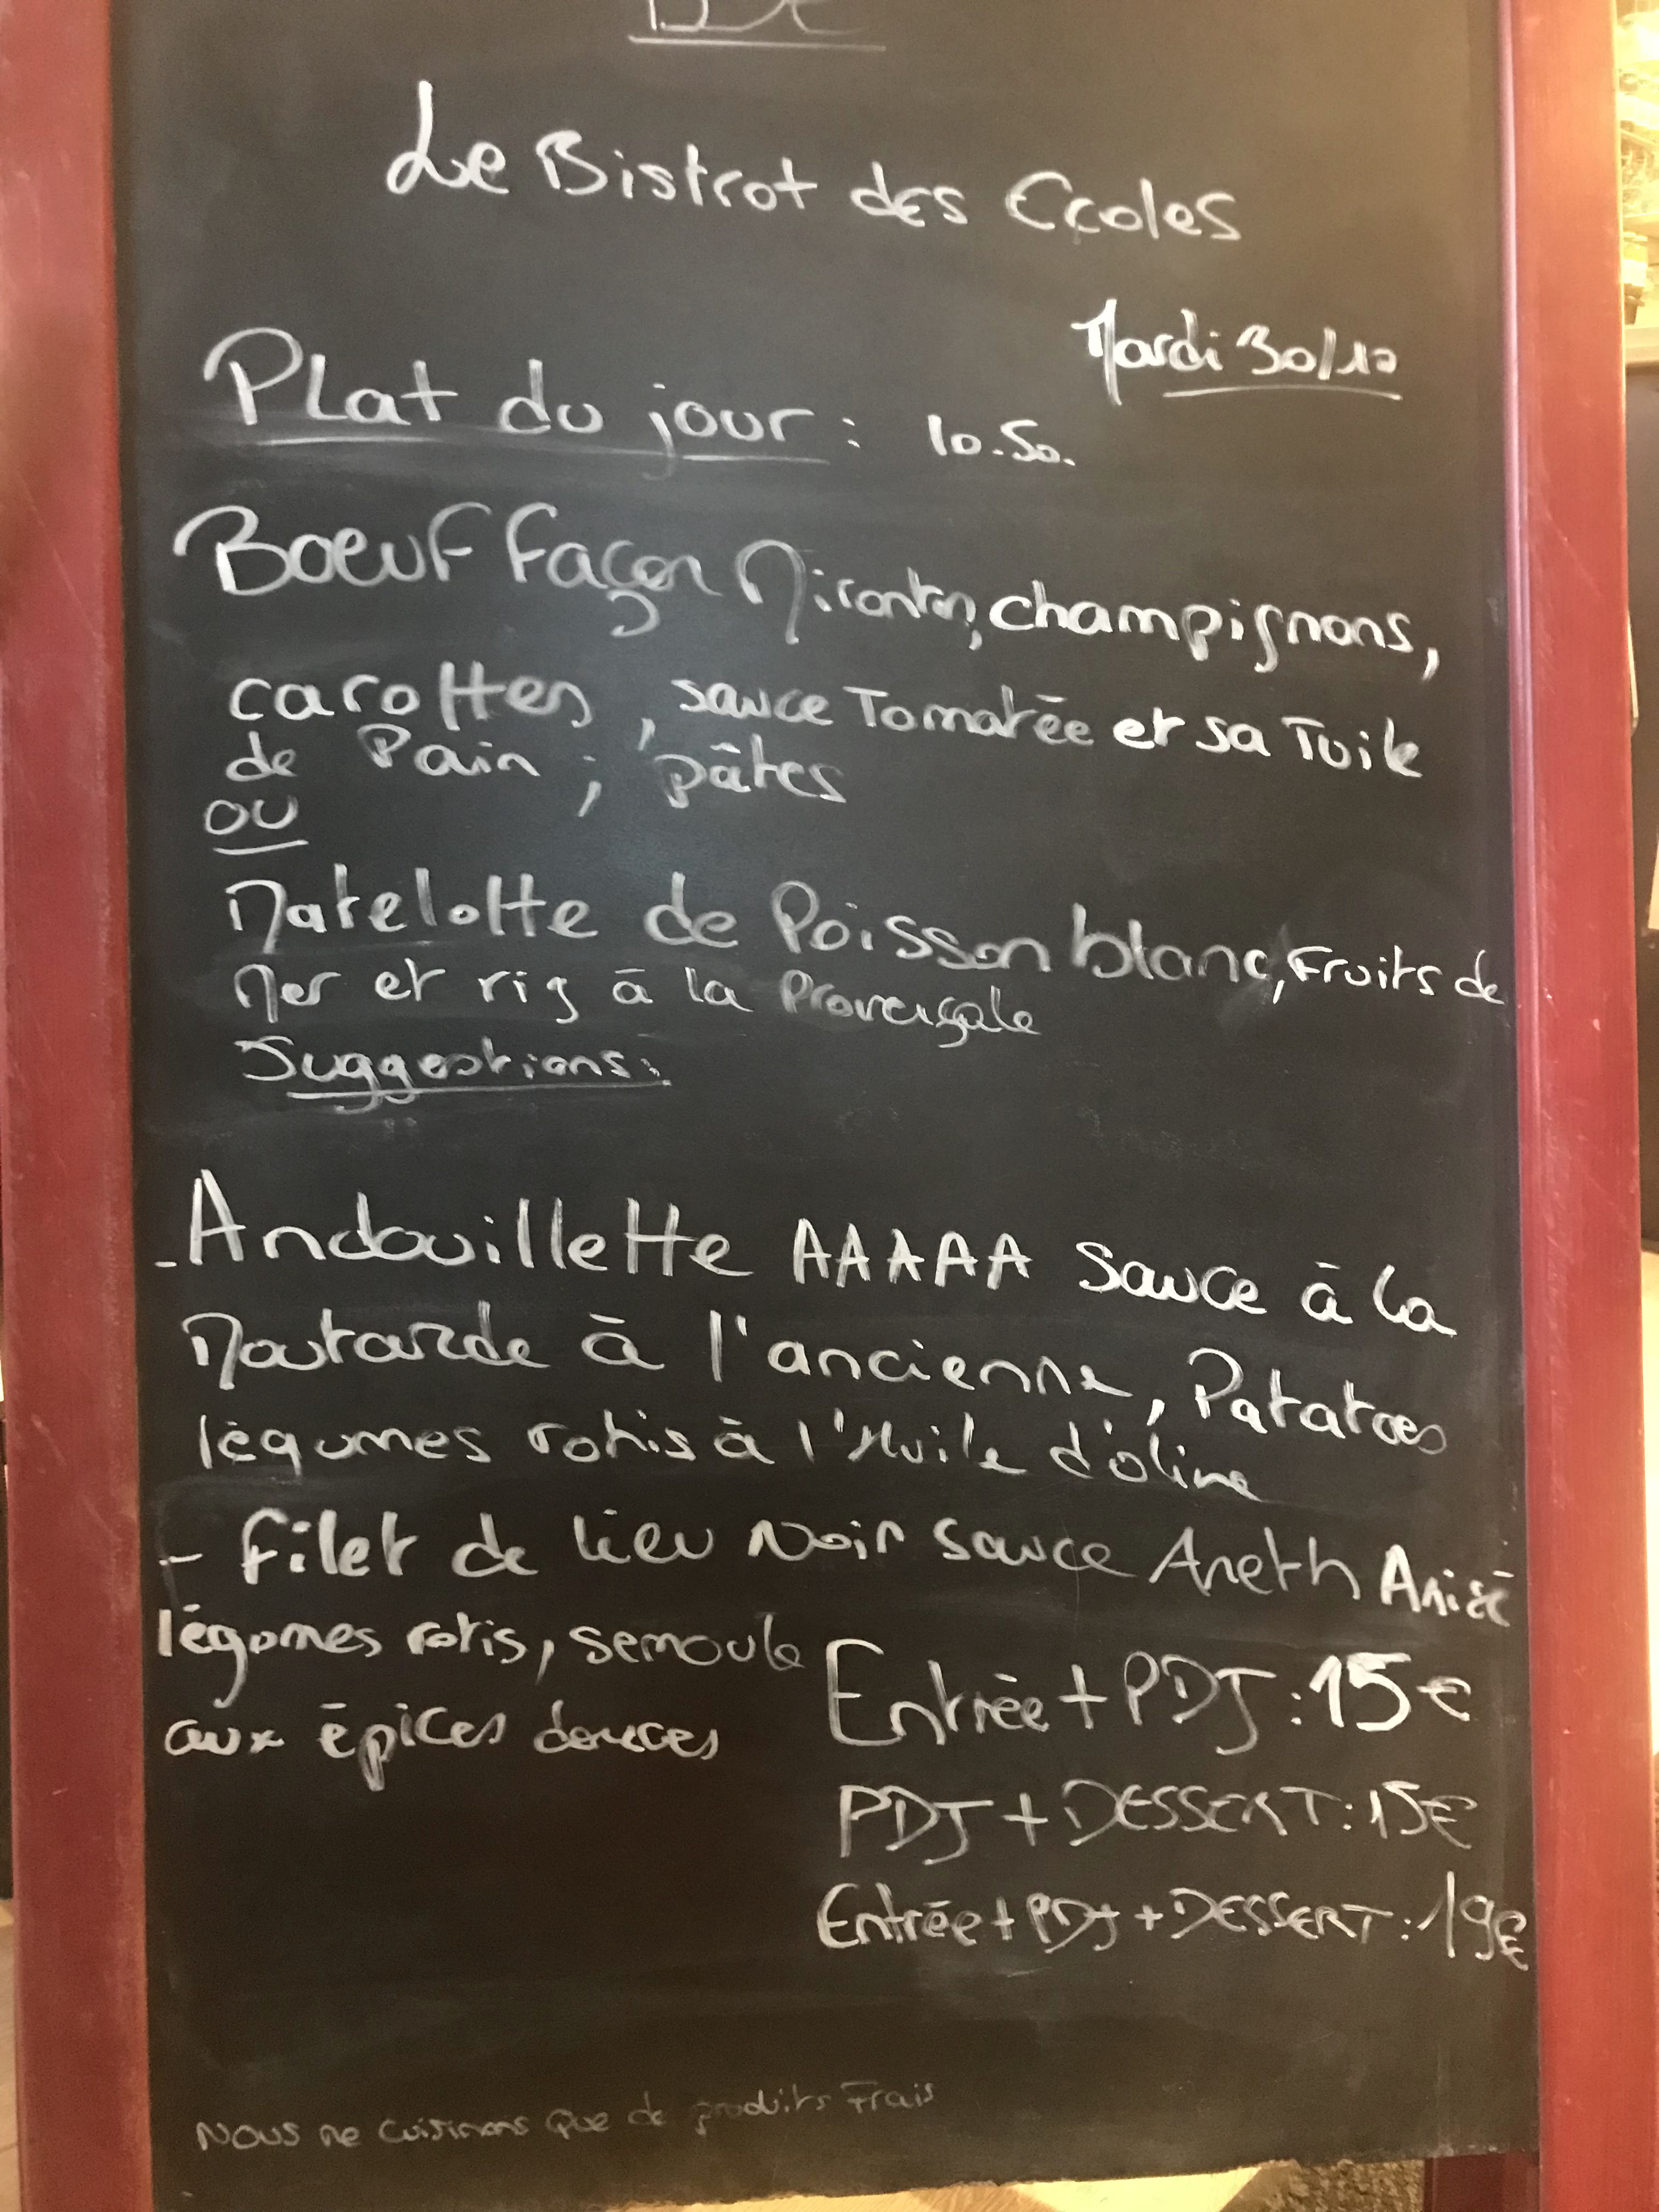 Le Bistrot des Ecoles
Mardi 30/10
Plat du jour : 10.50.
Boeuf façon Mironton, champignons,
carottes, sauce Tomatée et sa Tuile
de Pain ; pâtes
ou
Matelotte de Poisson blanc, Fruits de
Mer et riz à la Provençale
Suggestions:
- Andouillette AAAAA Sauce à la
Moutarde à l'ancienne, Patatoes
légumes rotis à l'Huile d'olive
- Filet de lieu Noir sauce Aneth Anisé
légumes rotis, semoule
aux épices douces
Entrée + PDJ : 15€
PDJ + DESSERT : 15€
Entrée + PDJ + DESSERT : 19€
Nous ne cuisinons que de produits Frais